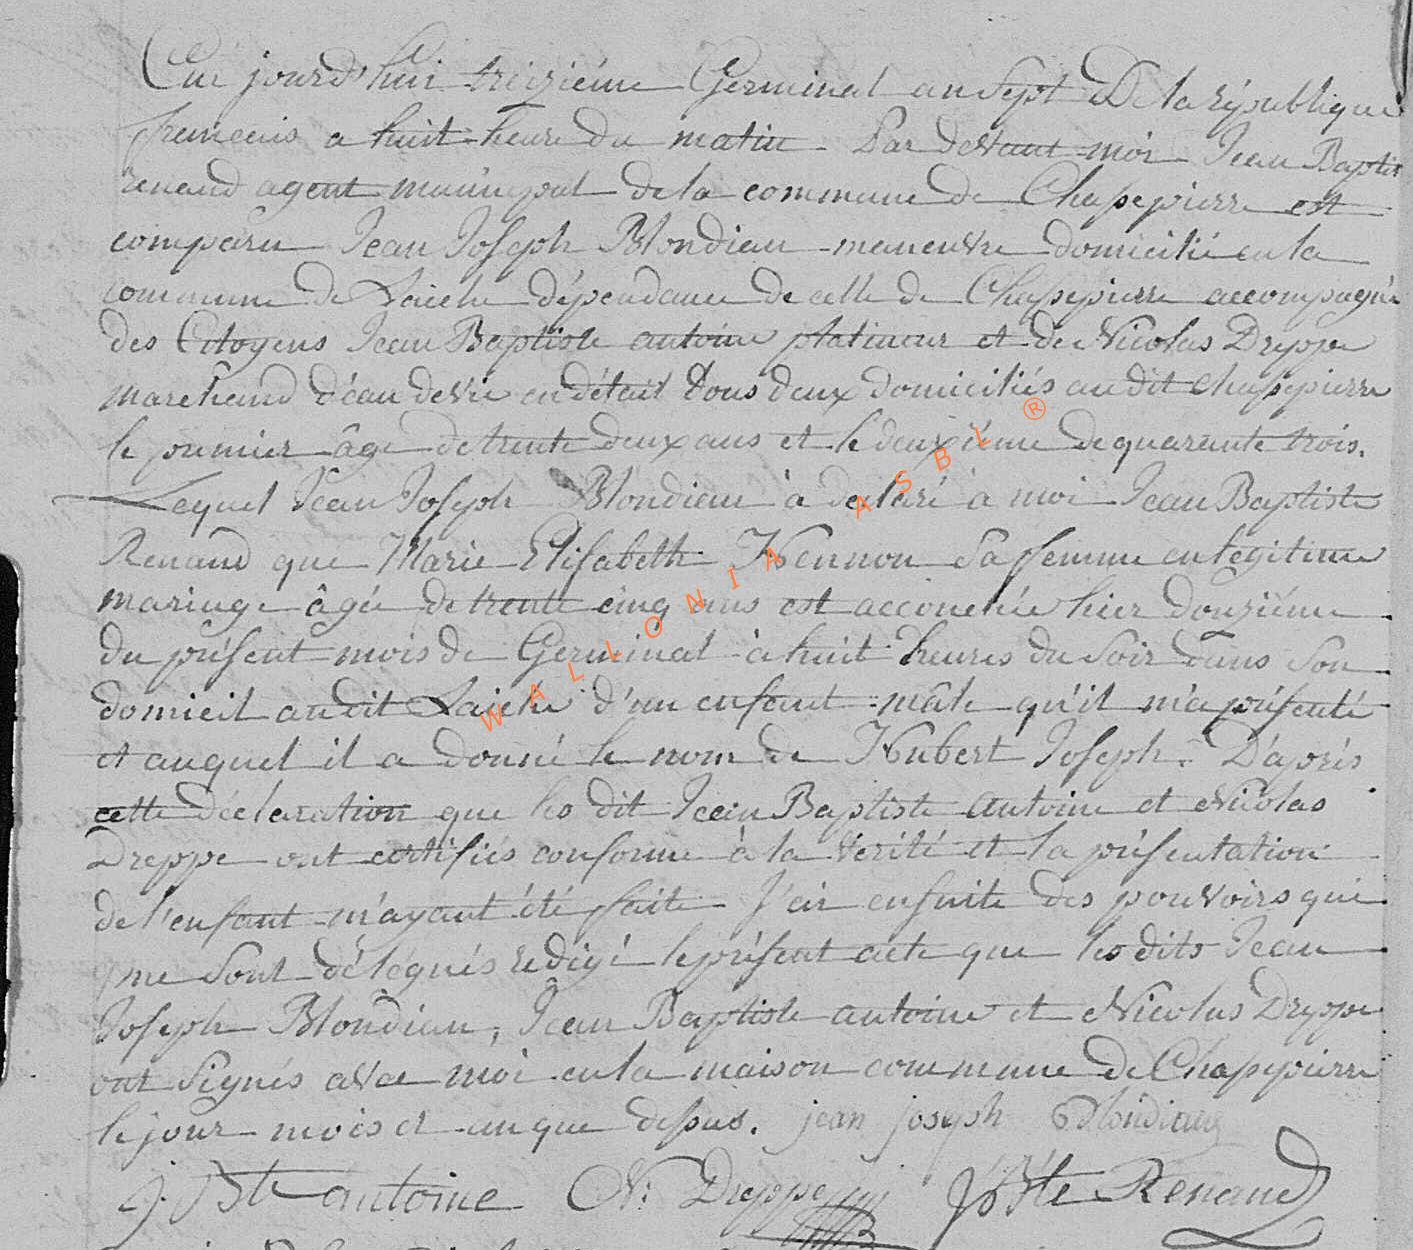 Cue jourd'hui treiziéme Germinal an Sept De la république
francais a huit heure du matin Par devant moi Jean Baptis
renaud agent municipal de la commune de Chasepierre est
comparu Jean Joseph Blondiau maneuvre domicilié en la
commune de Laiche dépendance de celle de Chassepierre accompagné
des Citoyens Jean Baptiste antoine platineur et de Nicolas Dreppe
marchand d'eau de vie en détail tous deux domiciliés audit Chassepierre
le premier âgé de trente deux ans et le deuxiéme de quarante trois.
Lequel Jean Joseph Blondieau à declaré à moi Jean Baptiste
Renaud que Marie Elisabeth Hennon Sa femme en légitime
mariage âgée de trente cinq ans est accouchée hier douziéme
du présent mois de Germinal à huit heures du Soir dans Son
domicil audit Laiche d'un enfant mâle qu'il m'a présenté
et auquel il a donné le nom de Hubert Joseph. D'aprés
cette déclaration que les dit Jean Baptiste antoine et Nicolas
Dreppe ont certifiés conforme à la vérité et la présentation
de l'enfant m'ayant été faite J'ai ensuite des pouvoirs qui
me Sont délégués rédigé le présent acte que les dits Jean
Joseph Blondiau, Jean Baptiste antoine et Nicolas Dreppe
ont Signés avec moi en la maison commune de Chassepierre
le jour mois et an que dessus. jean joseph Blondiaux
j. Bte antoine N: Dreppe J Bte Renaud
WALLONIA ASBL ®